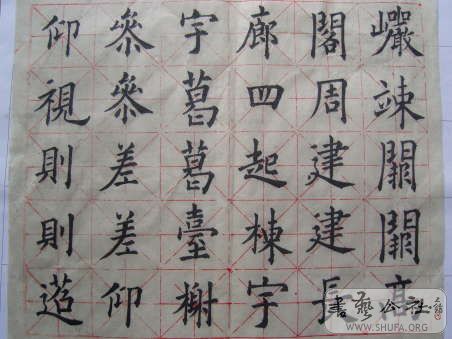 巖竦闕闕高
閣周建建長
廊四起棟宇
宇葛葛臺榭
參參差差仰
仰視則則迢
書藝公社
WWW.SHUFA.ORG